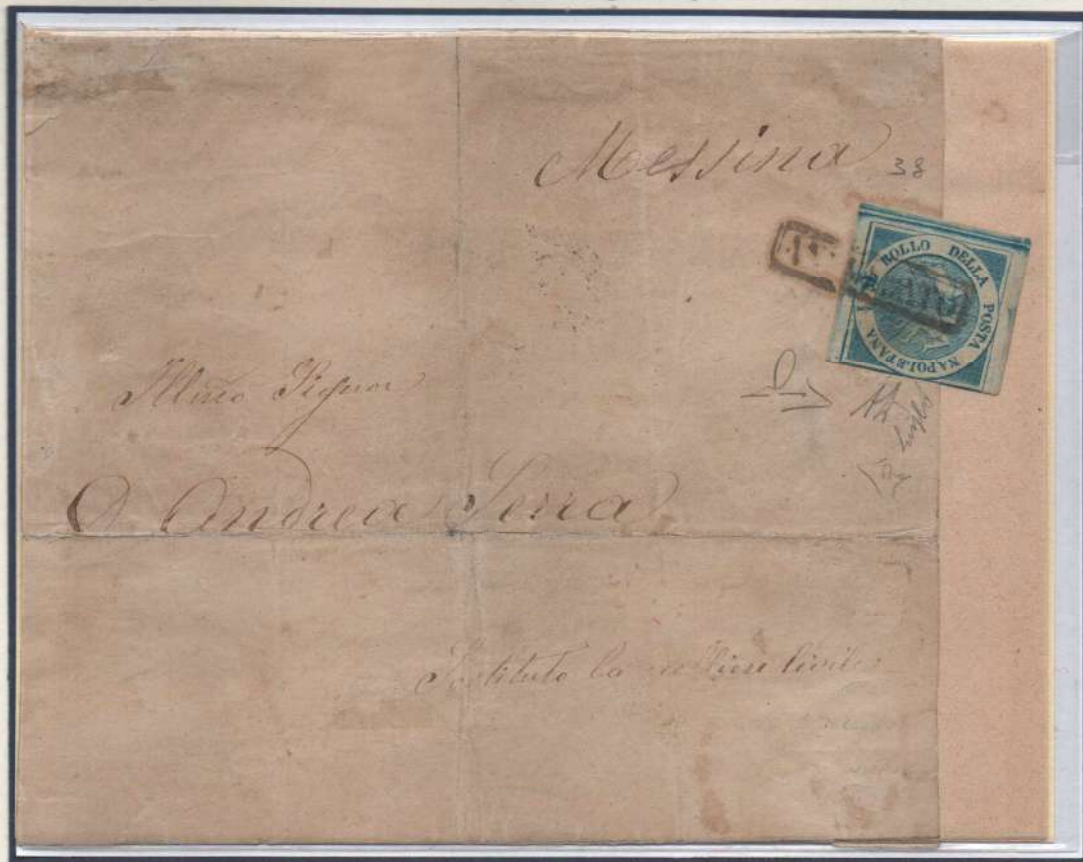 Messina
38
BOLLO DELLA POSTA NAPOLETANA
Illmo Signor
D Andrea Serra
Sostituto Cancelliere Civile